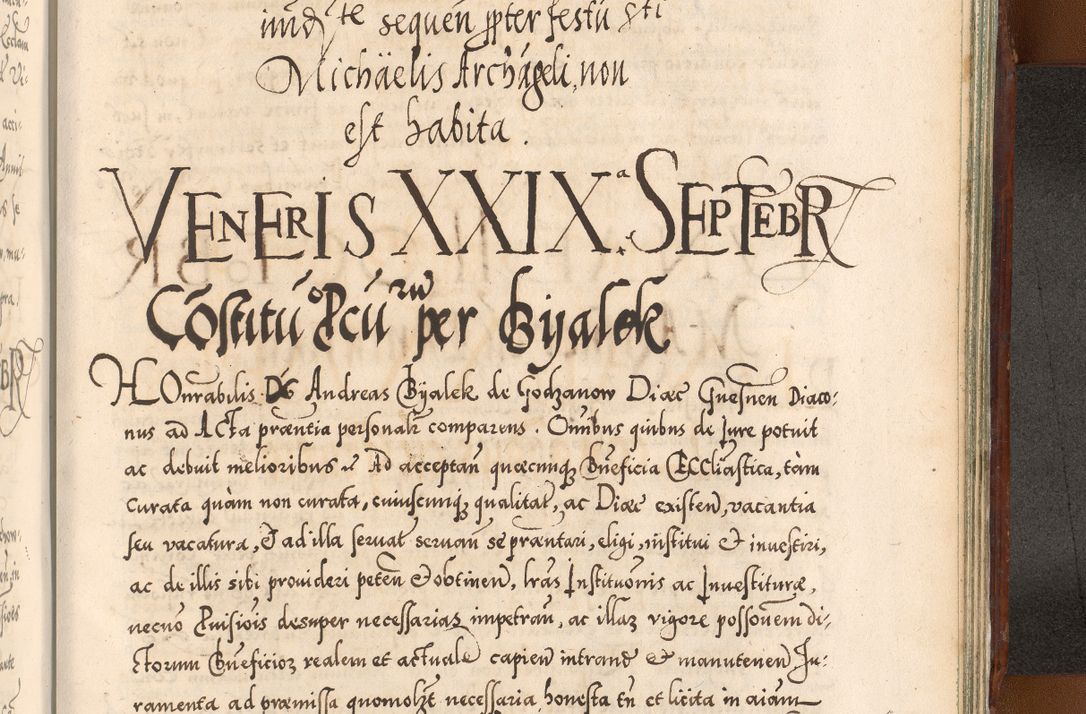 sequen ꝓpter festū Sti
Michäelis Archāgeli, non
est habita.
VENERIS XXIXa. SEPTEBR
Cōstitutio Pcurū per Byalek
HOnrabilis Ds Andreas Byalek de Godzanow Diæc Gnesnen Diaco:
nus ad ACta præntia personalr comparens. Omībus quibus de Jure potuit
ac debuit melioribus Ad acceptan quæcunqꝫ Bneficia ECCliastica, tàm
curata quàm non curata, cuiuscunqꝫ qualitat, ac Diæc existen, vacantia
seu vacatura, & ad illa servat servan se præntari, eligi, institui & investiri,
ac de illis sibi provideri peten & obtinen, lras Institutionis ac Investituræ,
necnō Pvisiōis desuper necessarias impetran, ac illaꝝ vigore possessionem di:
ctorum Bneficioꝝ realem et actuale capien intrand & manutenen Ju:
ramenta ad præmissa quomolꝫt necessaria, honesta tn et licita in aīam